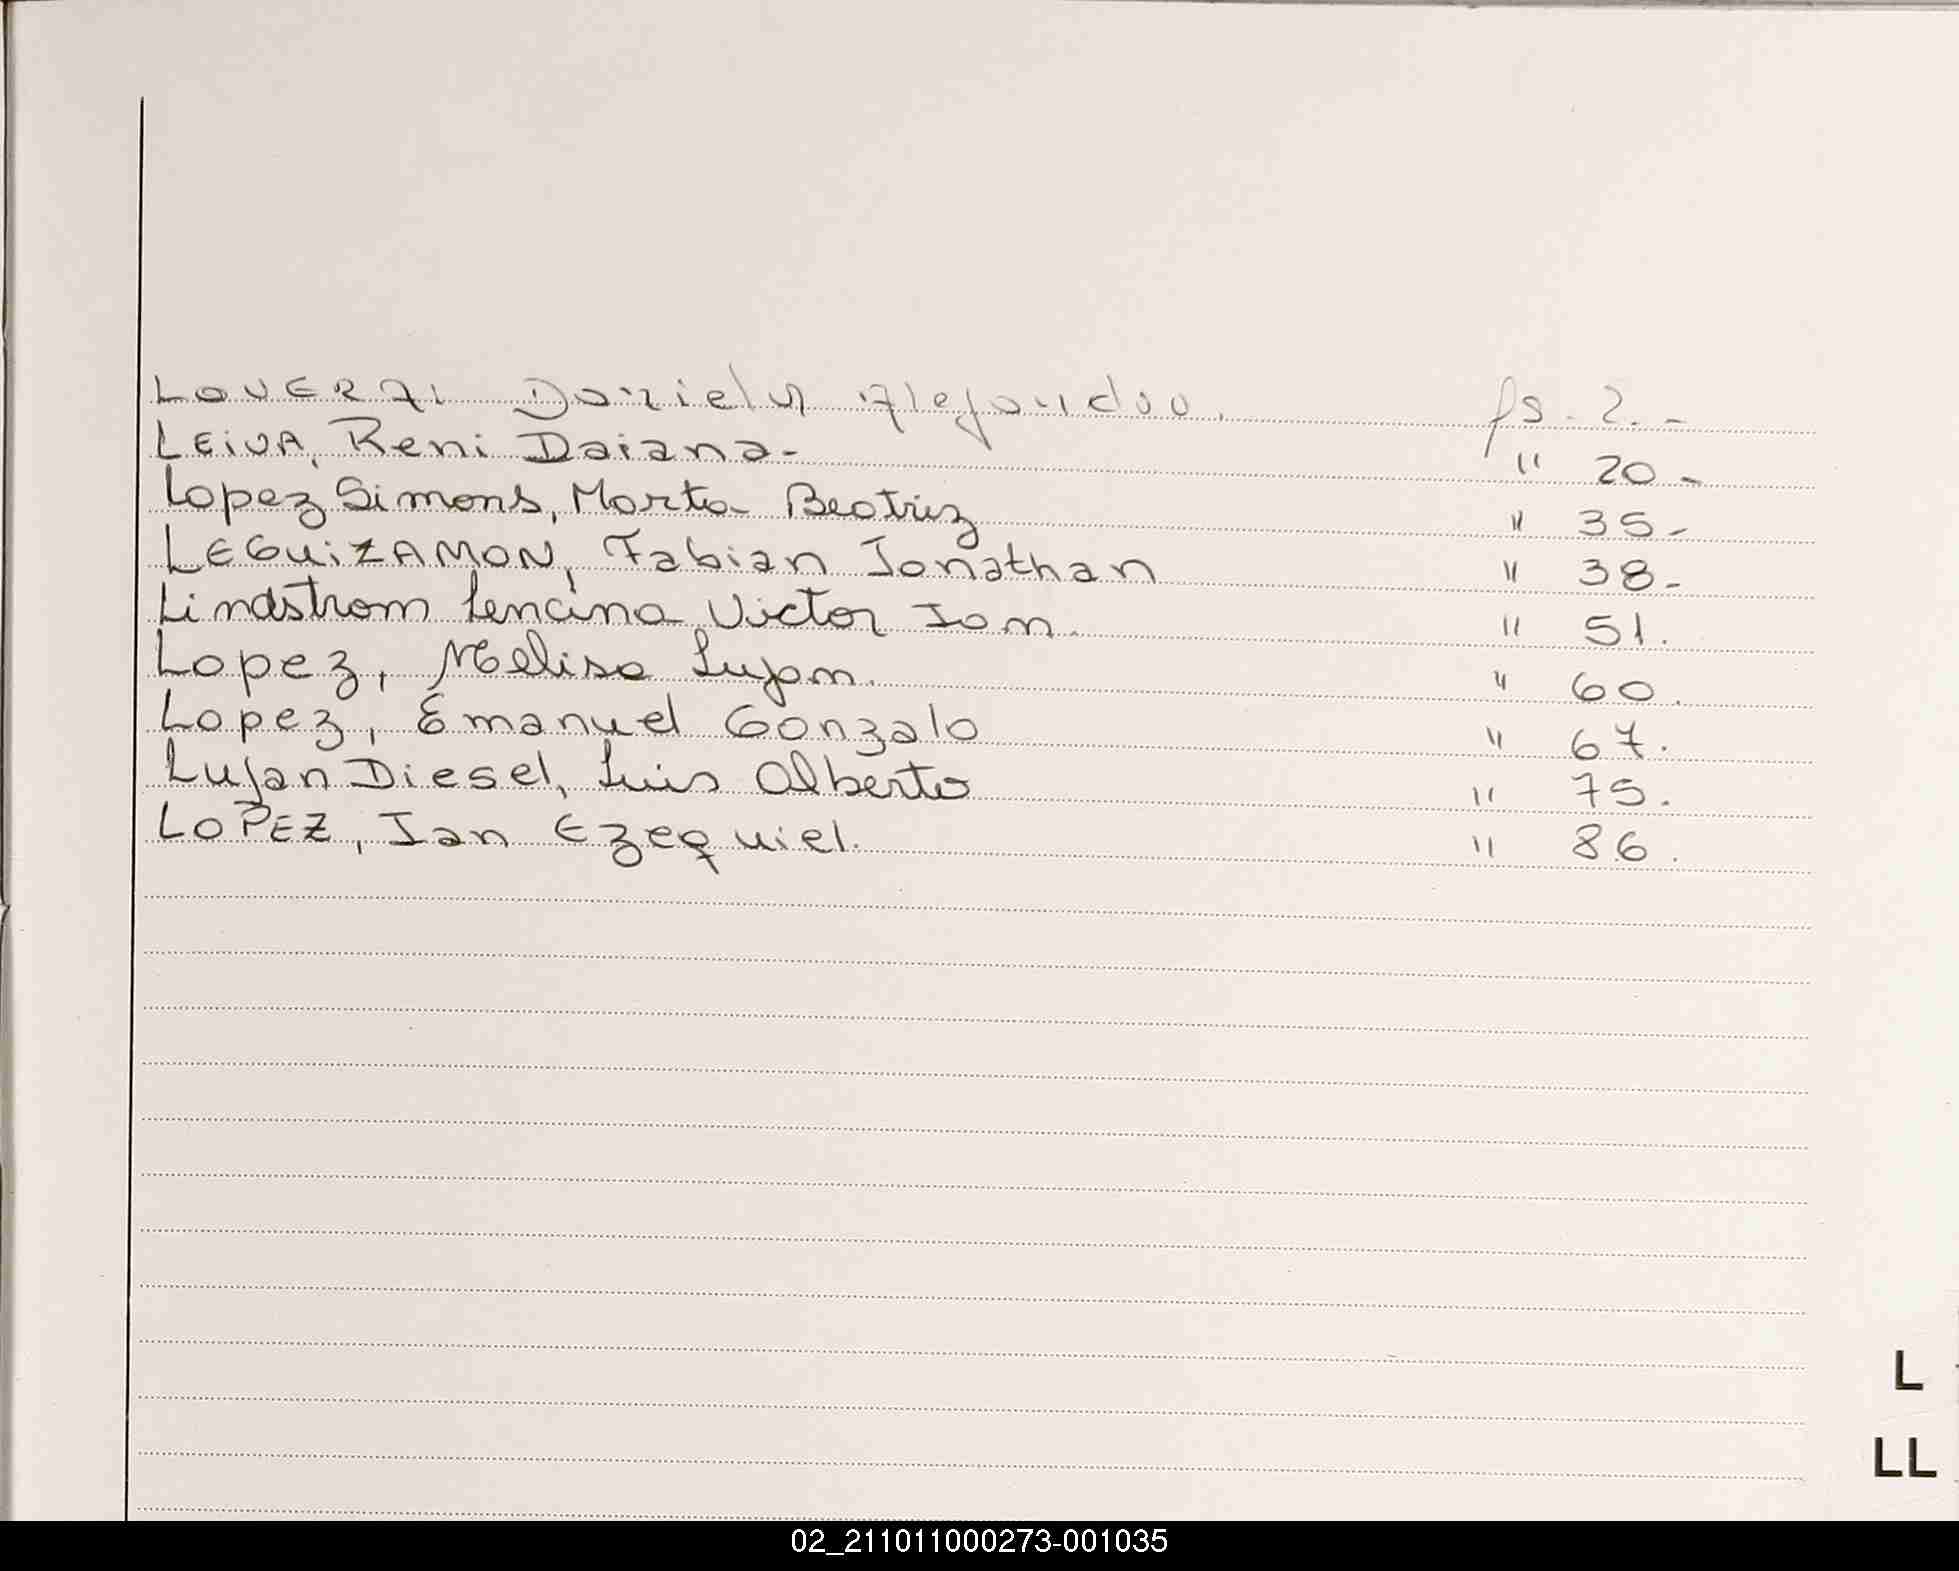 Daniela Alejandra. fs. 2.-
LEIVA, Reni Daiana- " 20-
Lopez Simons, Marta Beatriz " 35-
LEGUIZAMON, Fabian Jonathan " 38-
Lindstrom Lencina, Victor Ian. " 51.
Lopez, Melisa Lujan. " 60.
Lopez, Emanuel Gonzalo " 67.
Lujan Diesel, Luis Alberto " 75.
LOPEZ, Ian Ezequiel. " 86.
L
LL
02_211011000273-001035